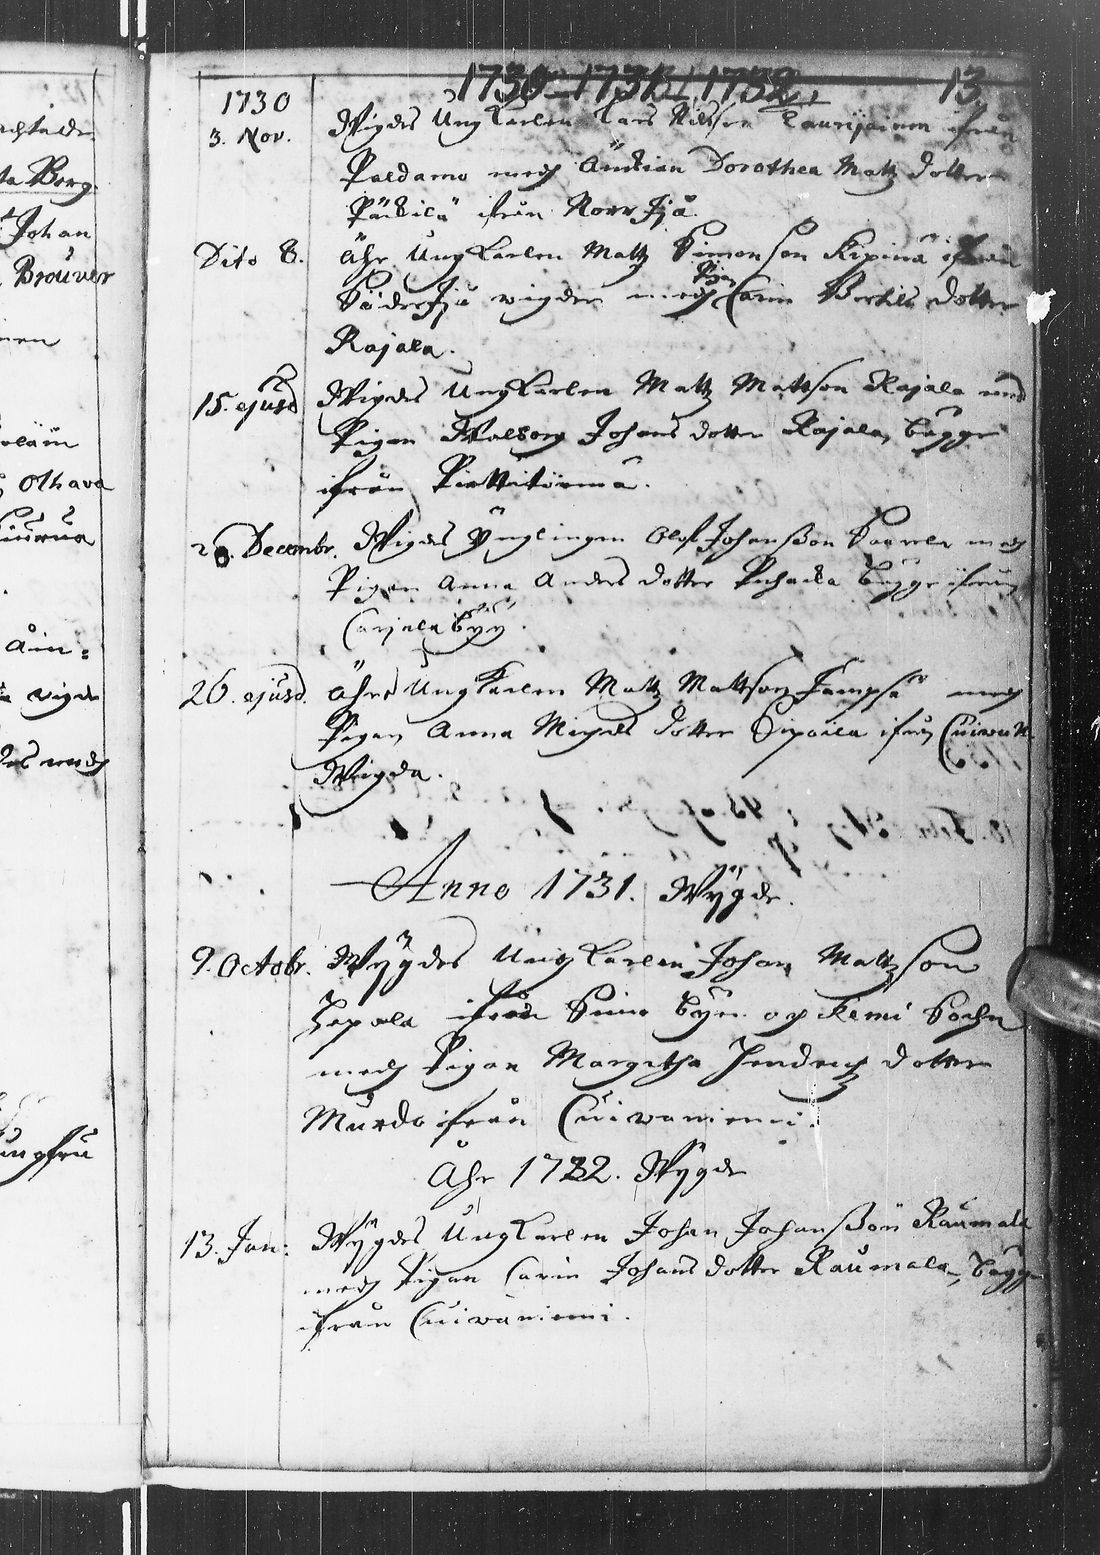 1730 - 1731 - 1732. 13.
1730
3. Nov. Wigdes Ungkarlen Lars Nilsson Laurijainen ifrån
Paldamo med Änckian Dorothea Matz dotter
Päckilä ifrån Norr Ijå.
Dito D. Ähr Ungkarlen Matz Simonson Kipinä ifrån
Söder Ijå wigder med Pig: Carin Bertils dotter
Rajala.
15. ejusd Wigdes Ungkarlen Matz Mattson Rajala med
Pigan Walborg Johans dotter Rajala, bägge
ifrån Pirttitörmä.
26. Decembr. Wigdes Ynglingen Olof Johansson Saarela med
Pigan Anna Anders dotter bägge ifrån
Carjala byy.
26. ejusd. Ähr Ungkarlen Matz Mattson Jämpsä med
Pigan Anna Michels dotter ifrån Cuiwan.
Wigda.
Anno 1731. Wygde.
9. Octobr. Wygdes Ungkarlen Johan Mattzson
ifrån Simo byn og Kemi Sochn
med Pigan Margetha Hendrichz dotter
Murdo ifrån Cuiwaniemi.
Åhr 1732. Wygde
13. Jan: Wygdes Ungkarlen Johan Johansson Raumala
med Pigan Carin Johans dotter Raumala, bägge
ifrån Cuiwaniemi.
ta Berg.
Johan
Brouver
Othava
wigde
med